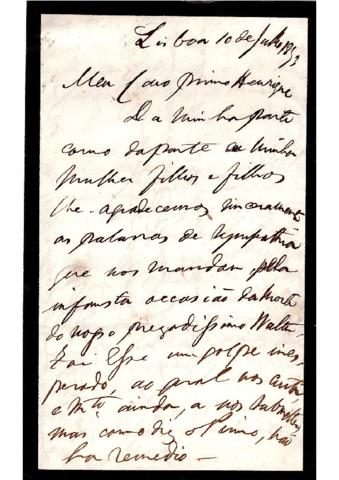 Lisboa 10 de Julho 1893
Meu Caro primo Henrique
Da minha parte
como da parte de minha
mulher filhos e filhos
lhe agradecemos sinceramente
as palavras de sympathia
que nos mandam pela
infausta occasião da morte
do nosso presadissimo Walter
Foi esse um golpe ines-
perado, ao qual nos
e ainda, a nos
mas como diz o Primo, não
ha remedio —